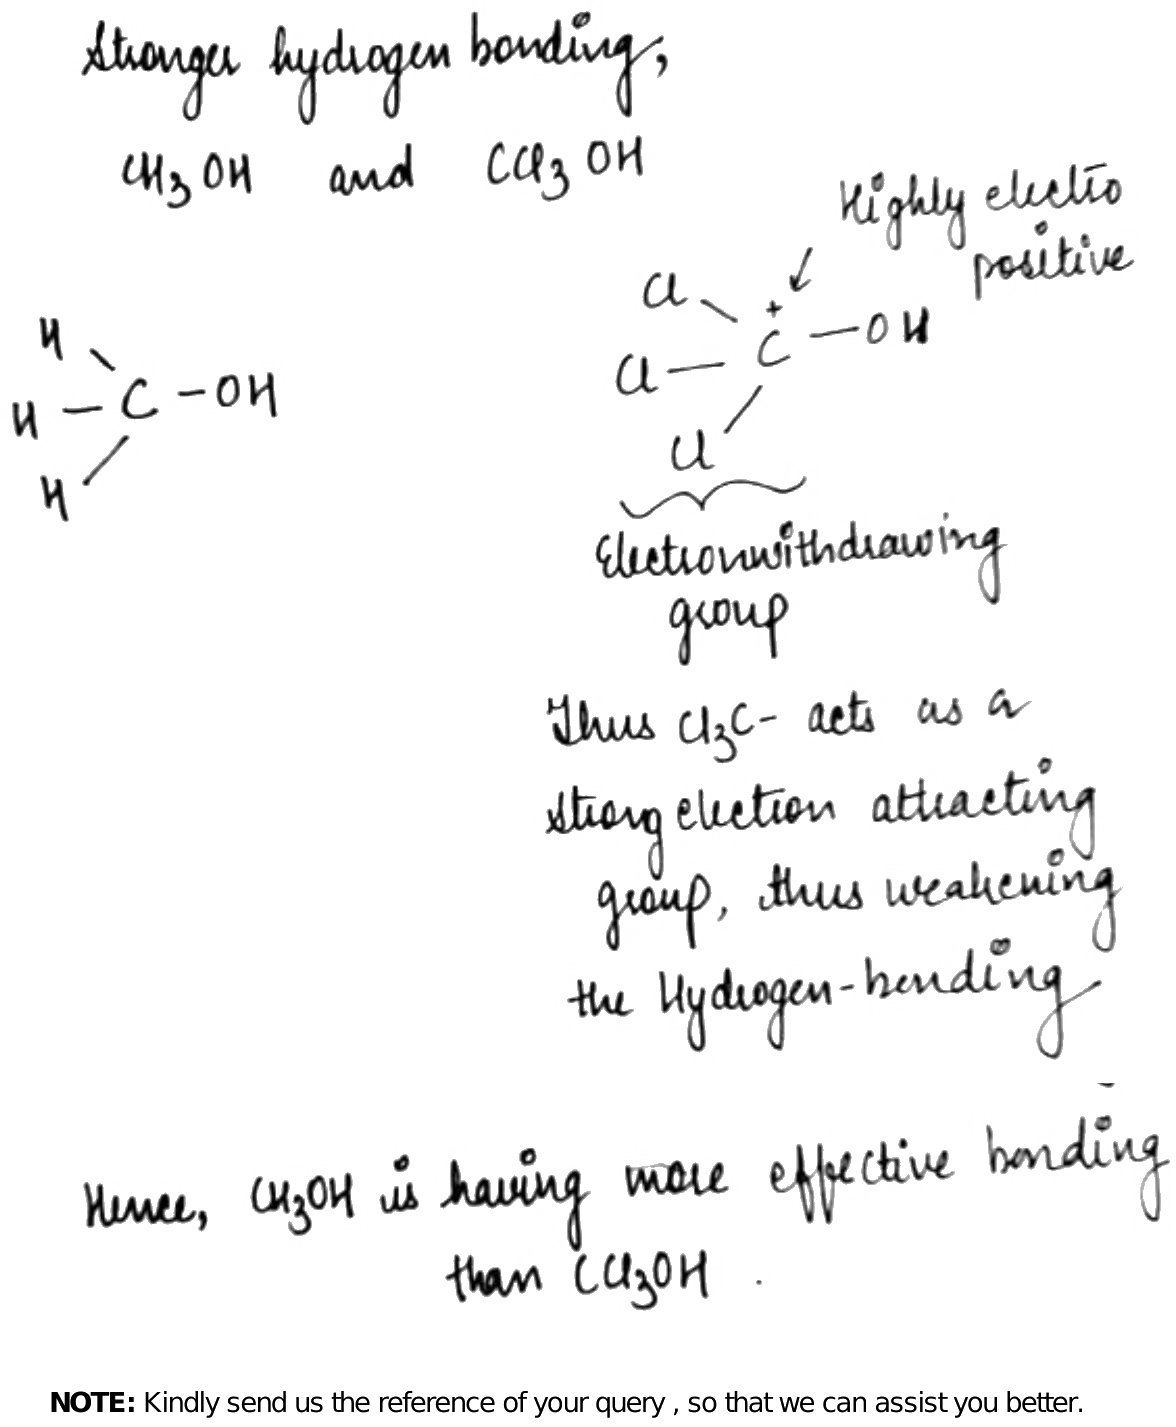 Stronger hydrogen bonding,
CH3OH and CCl3OH
Highly electro
positive
H
H – C – OH
H
Cl
+
Cl – C – OH
Cl
Electronwithdrawing
group
Thus Cl3C- acts as a
strong electron attracting
group, thus weakening
the Hydrogen-bonding
Hence, CH3OH is having more effective bonding
than CCl3OH .
NOTE: Kindly send us the reference of your query , so that we can assist you better.